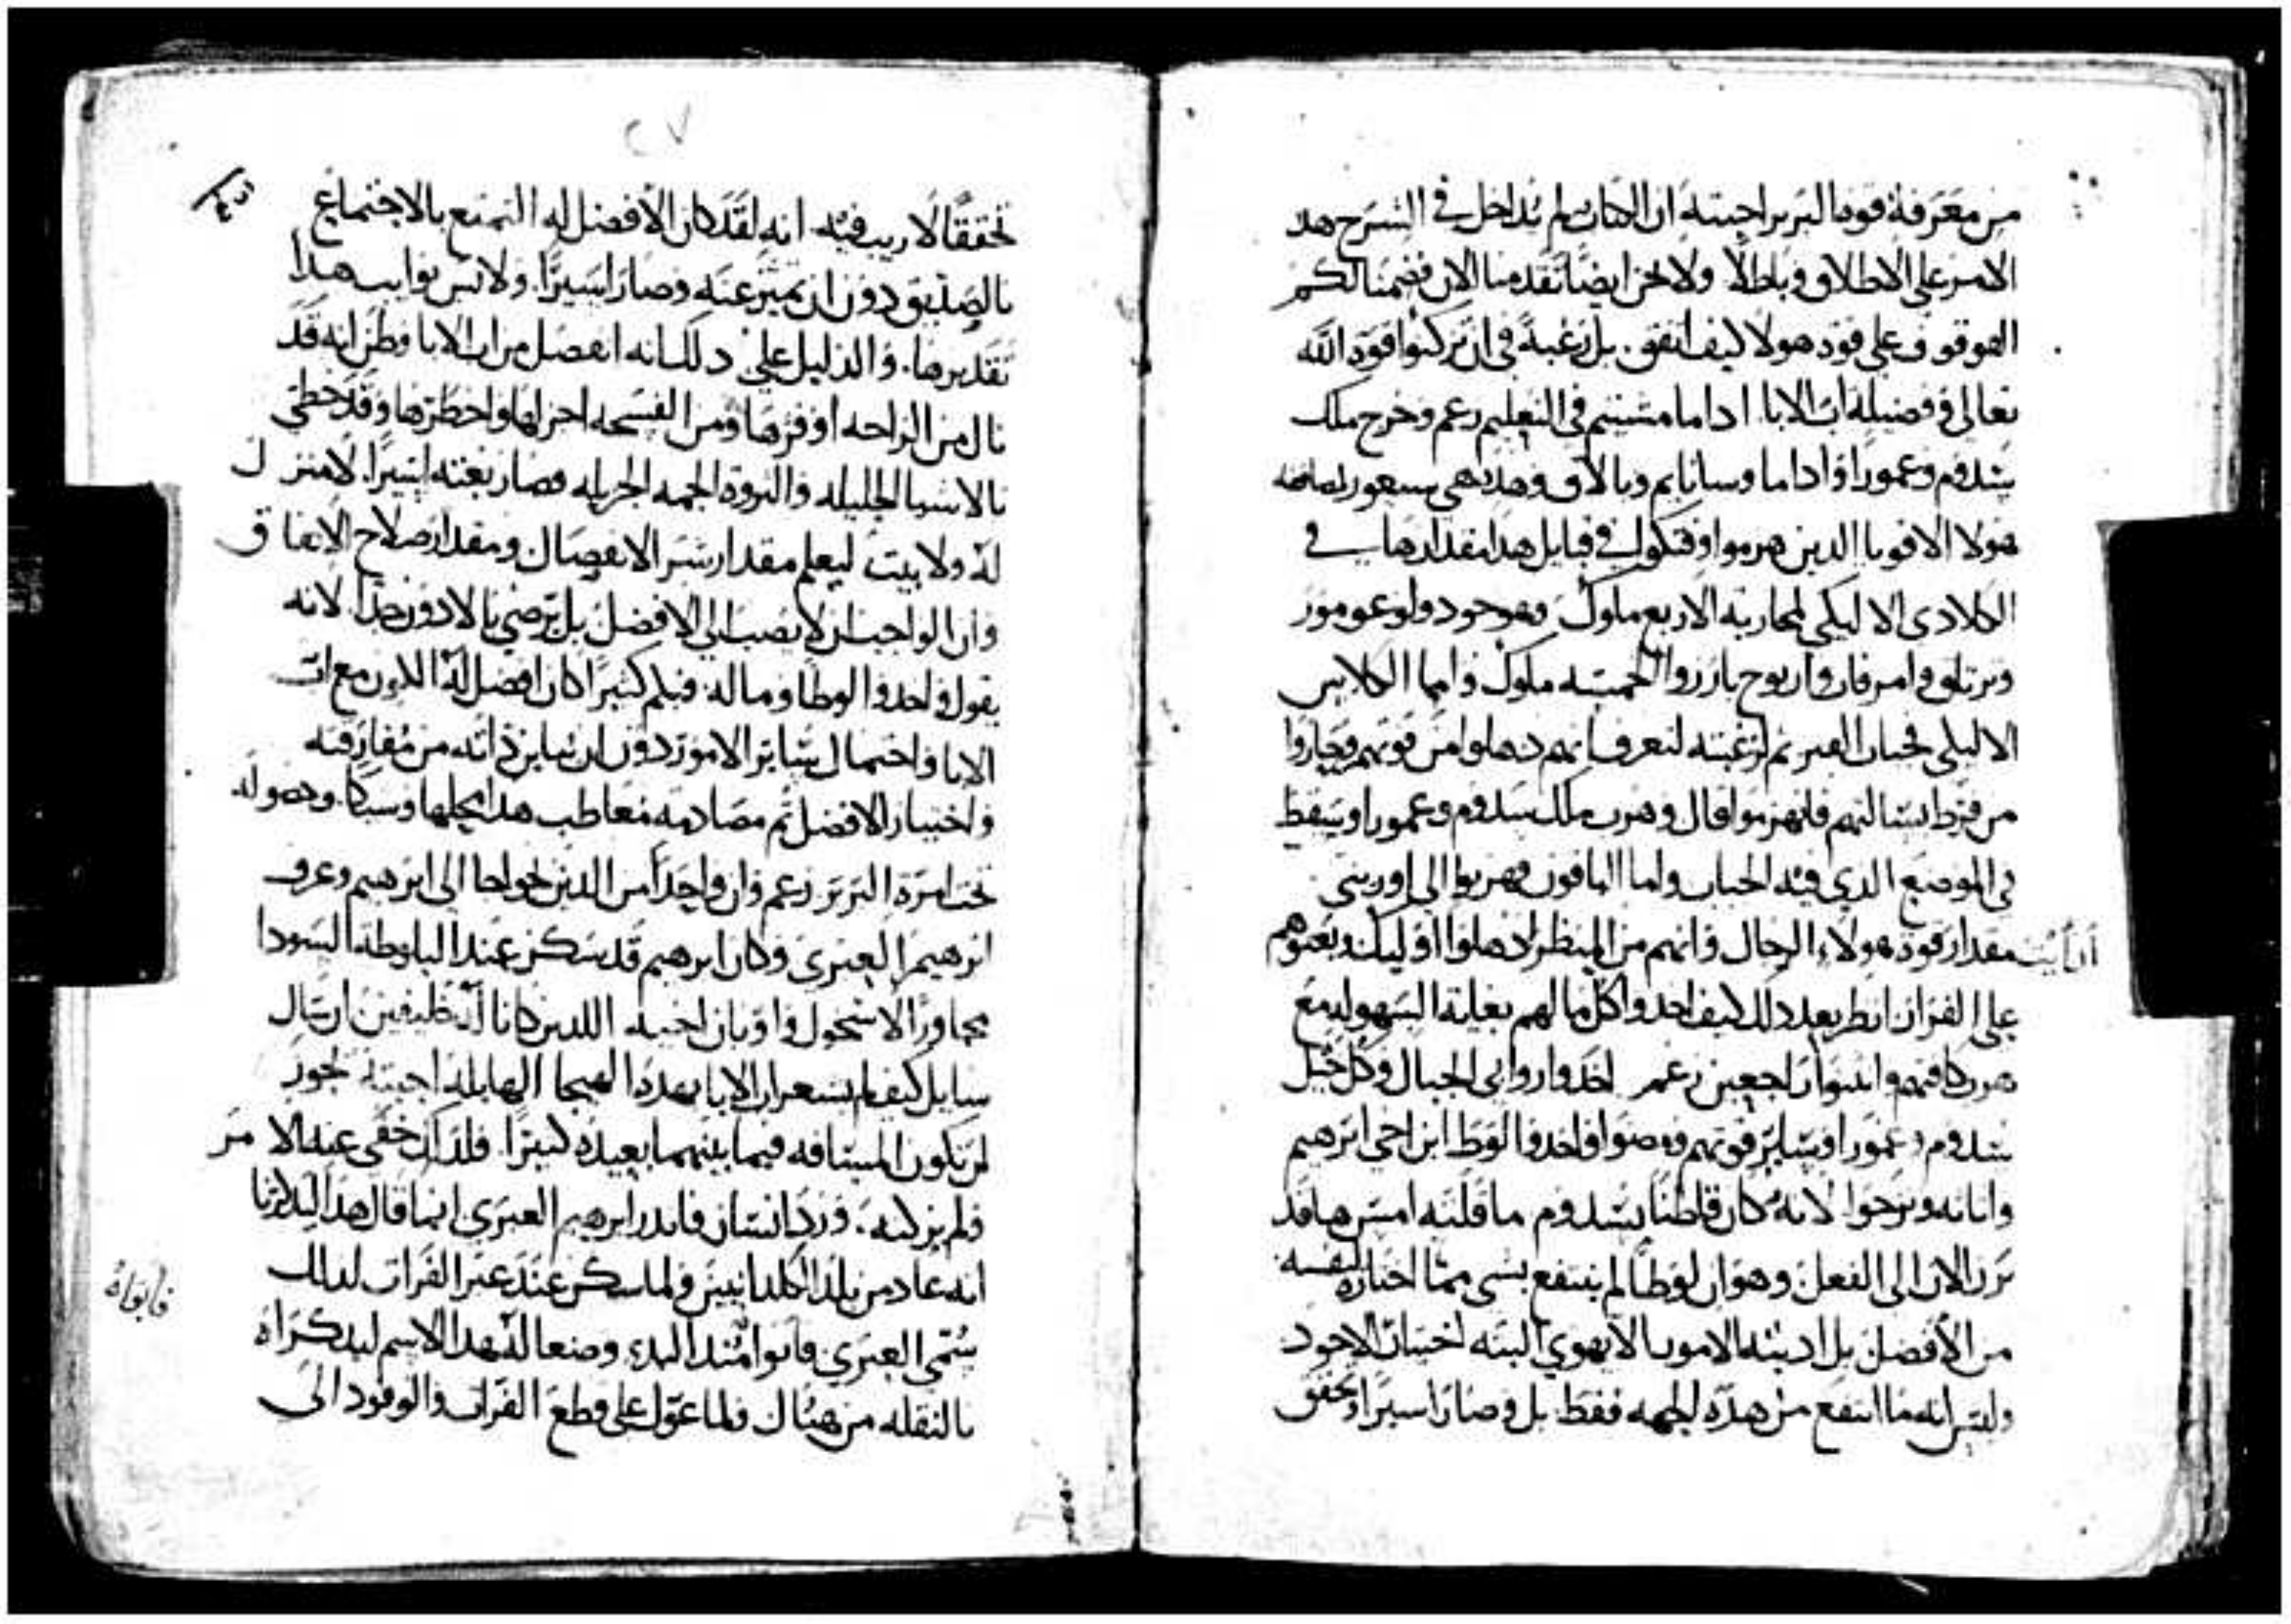 من معرفة قوة البربر احببته ان الكتاب لم يداخل في الشرح هدا
الامر على الاطلاق وباطلًا ولا نحن ايضًا تقدمنا الان فضمنا لكم
الوقوف على قوة هولا كيف اتفق. بل رغبة في ان تركنوا قوة الله
تعالى وفضيلة اب الابا. ادا ما مشيتم في التعليم زعم وخرج ملك
سدوم وعمورا وادا ما وسابايم وبالاق وهده هي سيعور لمصافه
هولا الاقويا الدين هزموا وقتكول في قبايل هدا مقدارها في
الكلادي الاليكي لمحاربة الاربع ملوك
وامرفان واريوح الخمسه ملوك واما الكلابس
الاليلي فجباب القير ثم لرغبته لتعرف انهم دهلوا من قوتهم وحاروا
من فرط بسالتهم فانهزموا قال وهرب ملك سدوم وعمورا وسقط
في الموضع الدي فيه الجباب واما الباقون فهربوا الى اوريني
مقدار قوة هولاء الرجال وانهم من المنظر ادهلوا اوليك وبعثوهم
على الفرار انظر بعد دلك كيف اخدوا كل مالهم بغاية السهوله مع
هرب كافتهم وانثنوا راجعين زعم اخدوا روابي الجبال وكل خيل
سدوم وعمورا وساير قوتهم ومضوا واخدوا لوط ابن اخي ابرهيم
واتاته ونزحوا لانه كان قاطنًا بسدوم ما قلته امس ها قد
برز الان الى الفعل وهو ان لوطًا لم ينتفع بشي مما اختاره لنفسه
من الافضل بل ادبته الامور بالا يهوي البته اختيار الاجود
وليس انه ما انتفع من هده الجهه فقط بل وصار اسيرا وتحقق
تحققًا لا ريب فيه انه لقد كان الافضل له التمتع بالاجتماع
بالصديق دون ان يميز عنه وصار اسيرًا. ولانس نوايب هدا
تقديرها. والدليل على دلك انه انفصل من اب الابا وظن انه قد
نال من الراحه اوفرها ومن الفسحه اجزلها واخطرها وقد حظي
بالاشيا الجليله والثروة الجمه الجزيله فصار بغته اسيرًا. لا منزل
له ولا بيت ليعلم مقدار شر الانفصال ومقدار صلاح الاتفاق
وان الواجب ان لا يصبب الى الافضل بل يرضي بالادون جدًا. لانه
يقول واخدوا لوطا وماله. فبكم كثيرًا كان افضل له الكون مع اب
الابا واحتمال ساير الامور دون ان يباين ذاته من مفارقته
واختيار الافضل ثم مصادمه معاطب هدا محلها وسبكا وحصوله
تحت امرة البربر زعم وان واحدًا من الدين نجوا جا الى ابرهيم وعرف
ابرهيم العبري وكان ابرهيم قد سكن عند البلوطة السودا
مجاورًا لاشخول واونان اخيه اللدين كانا له حليفين ان سال
سايل كيف لم يشعر اب الابا بهده الهيجا الهايله اجيته لجور
ان تكون المسافه فيما بينهما بعيده كثيرًا. فلدلك خفي عنه الامر
فلم يزكنه. ورد انسان فاندر ابرهيم العبري انما قال هدا ليدلنا
انه عاد من بلد الكلدانيين ولما سكن عند عبر الفرات لدلك
سمي العبري فابوا مند البدء وضعا له هدا الاسم ليدكراه
بالنقله من هناك فلما عول على قطع الفرات والوفود الى
فابواه